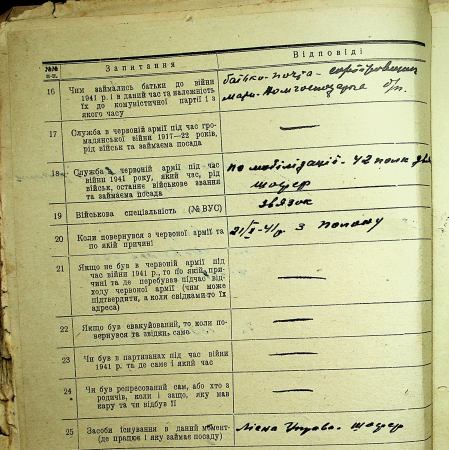 №№
п-п.
Запитання
Відповіді
16
Чим займались батьки до війни
1941 р. і в даний час та належність
їх до комуністичної партії і з
якого часу
батько - пошта -
мати - домгосподарка б/п.
17
Служба в червоній армії під час гро-
мадянської війни 1917—22 років,
рід військ та займаєма посада
—
18
Служба в червоній армії під час
війни 1941 року, який час, рід
військ, останнє військове звання
та займаєма посада
по мобілізації - 42 полк
шофер
19
Військова спеціальність (№ ВУС)
звязок
20
Коли повернувся з червоної армії та
по якій причині
з полону
21
Якщо не був в червоній армії під
час війни 1941 р., то по якій при-
чині та де перебував підчас відхо-
ду червоної армії (чим може
підтвердити, а коли свідками то їх
адреса)
—
22
Якщо був евакуйований, то коли по-
вернувся та звідки, саме
—
23
Чи був в партизанах під час війни
1941 р. та де саме і який час
—
24
Чи був репресований сам, або хто з
родичів, коли і защо, яку мав
кару та чи відбув її
—
25
Засоби існування в даний момент-
(де працює і яку займає посаду)
Лісна Управа - шофер